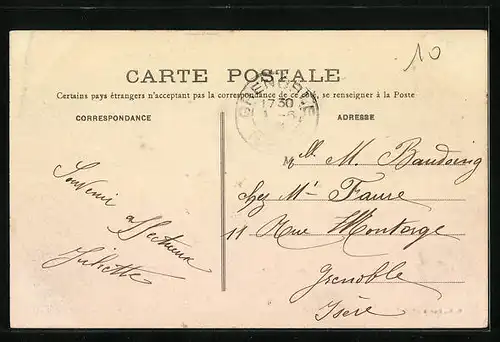 10
CARTE POSTALE
Certains pays étrangers n'acceptant pas la correspondance de ce côté, se renseigner à la Poste
CORRESPONDANCE
ADRESSE
GRENOBLE
17 30
Souvenir
affectueux
Juliette
Mlle M. Baudoing
chez Mr Faure
11 Rue Montorge
Grenoble
Isère